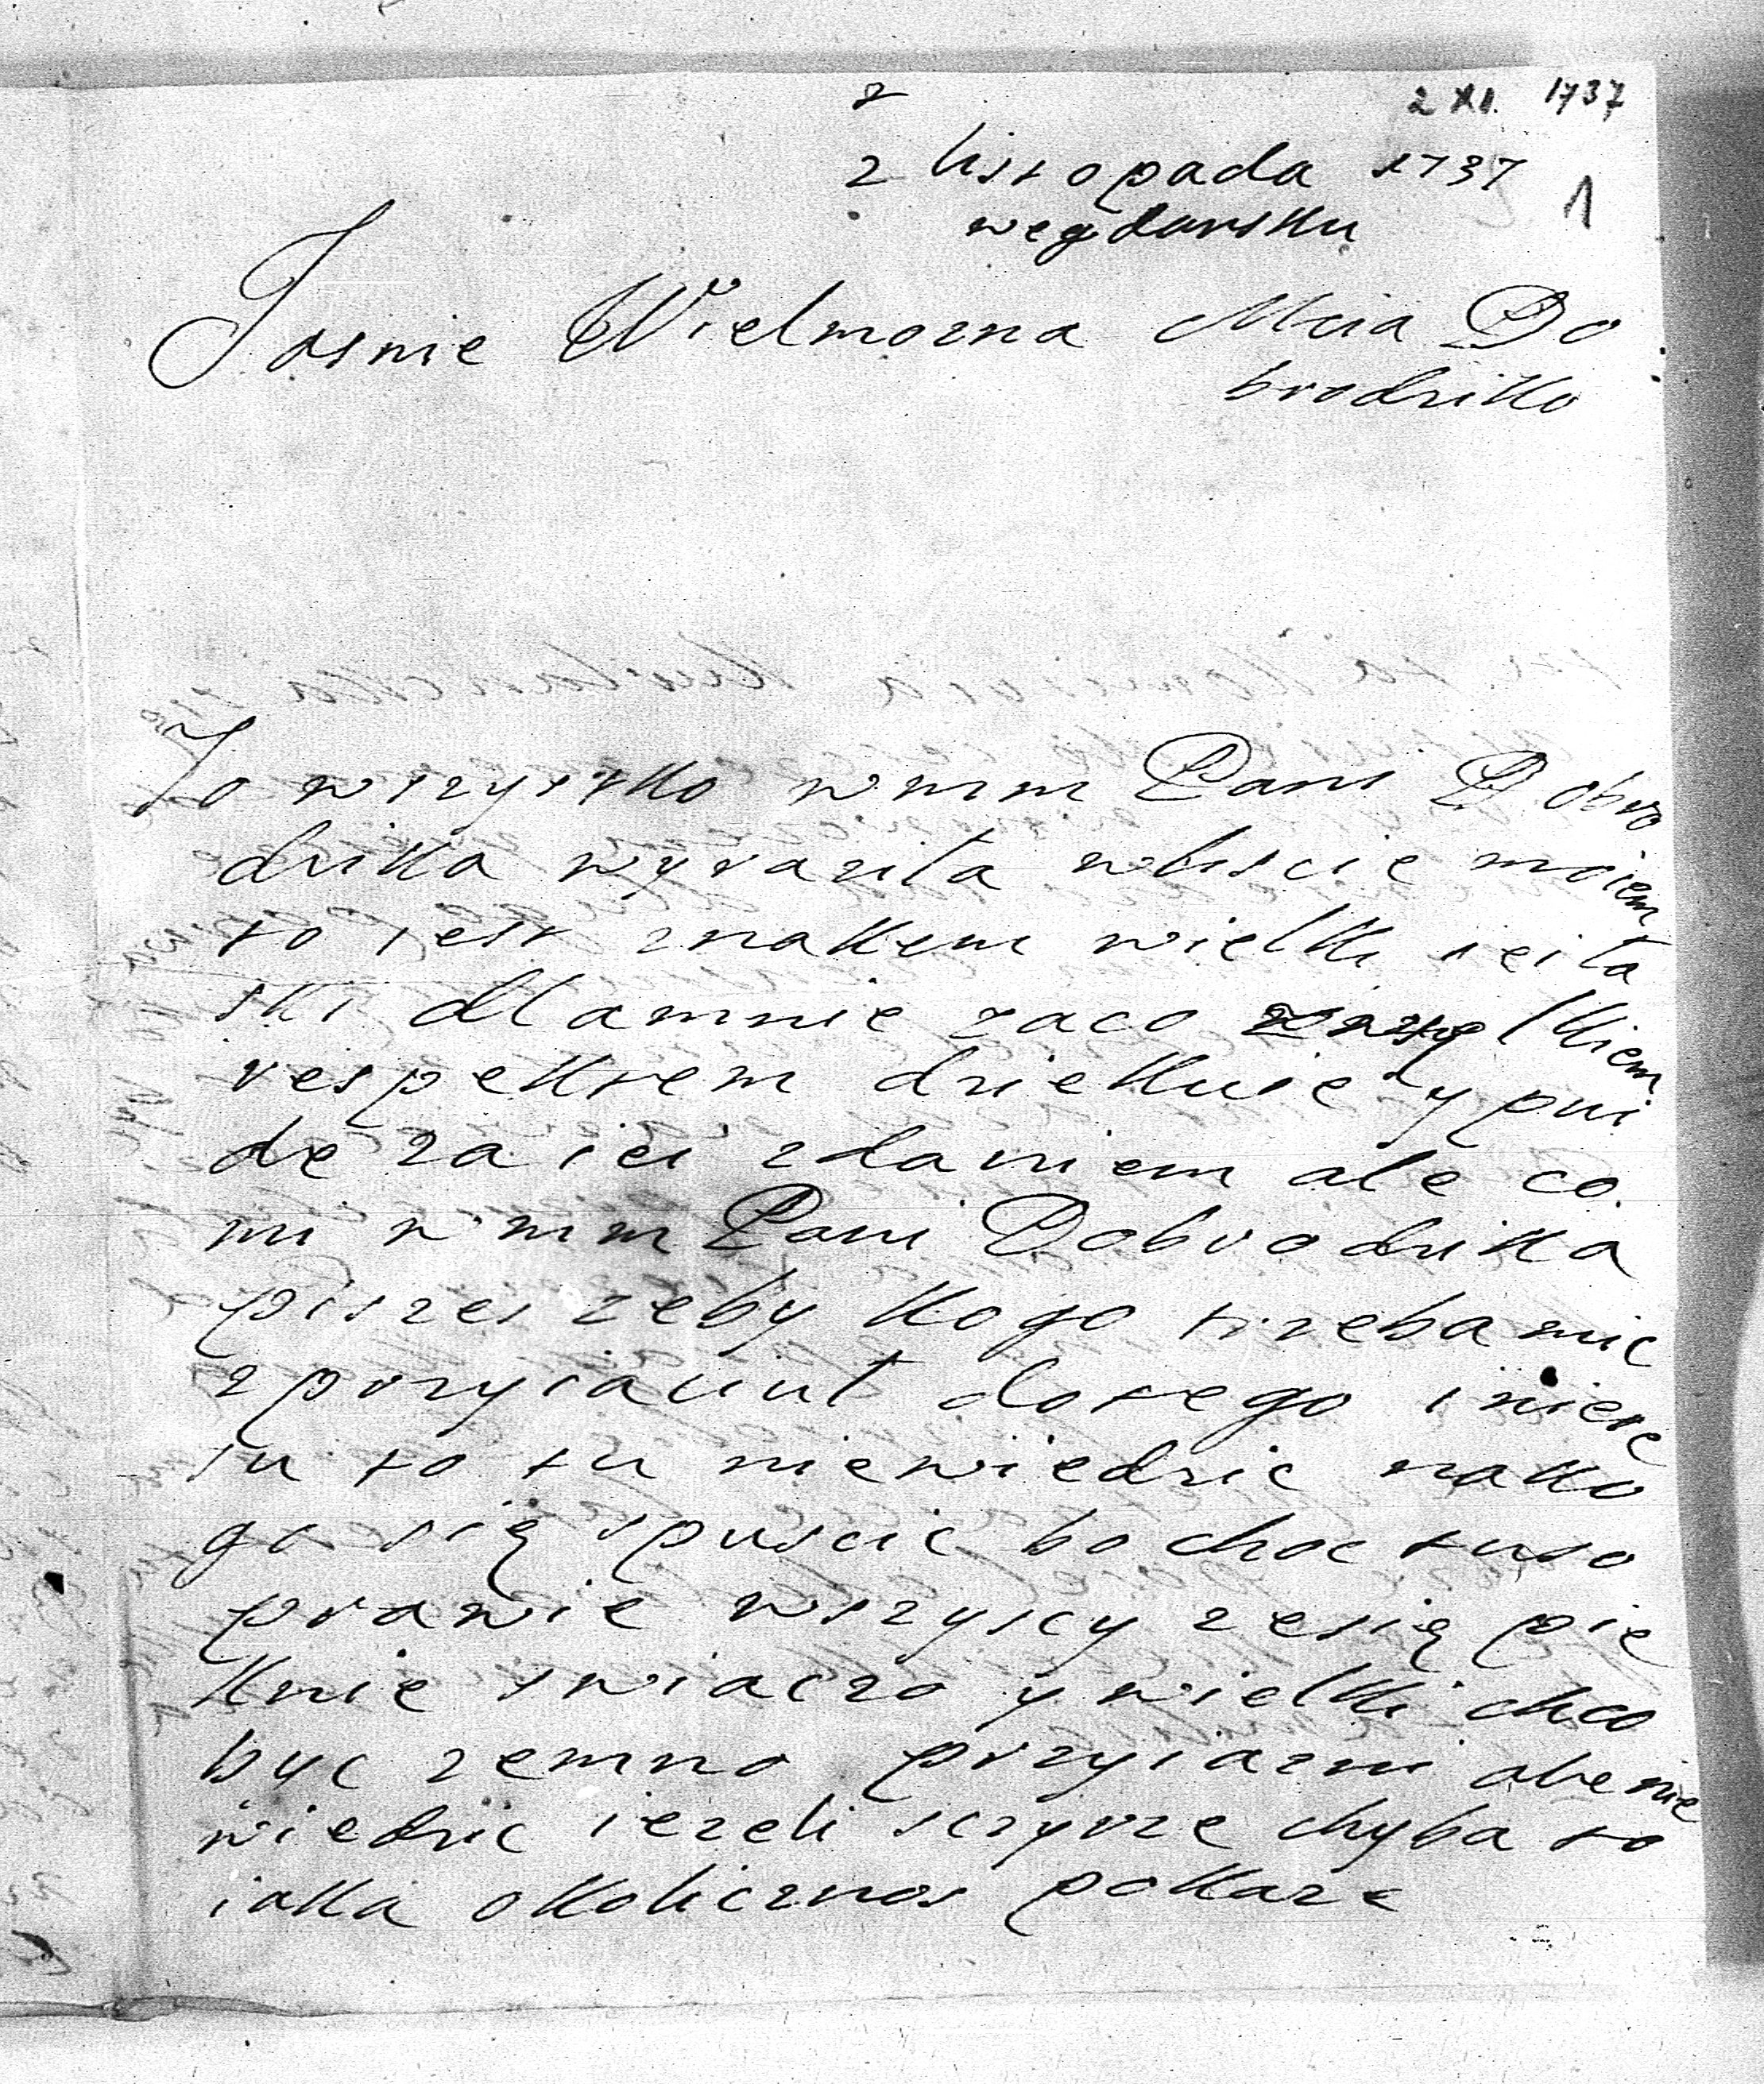 2 XI. 1737
2 listopada 1737
1
wegdansku
Jasnie Wielmozna Mcia Do
brodziko
To wszystko wmm Pani Dobro
dzika wyrazila wliscie moiem
to iest znakiem wielki iei la
ski dlamnie zaco zwszelkiem
respektem dziekuie y pui
de za iei zdaniem ale co
mi wmm Pani Dobrodzika
pisze zeby kogo trzeba mic
zprzyiaciul dotego interę
su to tu niewiedzic nako
go się spuscic bo choc tuso
prawie wszyscy zesię pię
knie swiaczo y wielki chco
byc zemno przyiazni ale nie
wiedzic iezeli sczyrze chyba to
iaka okolicznos pokaze